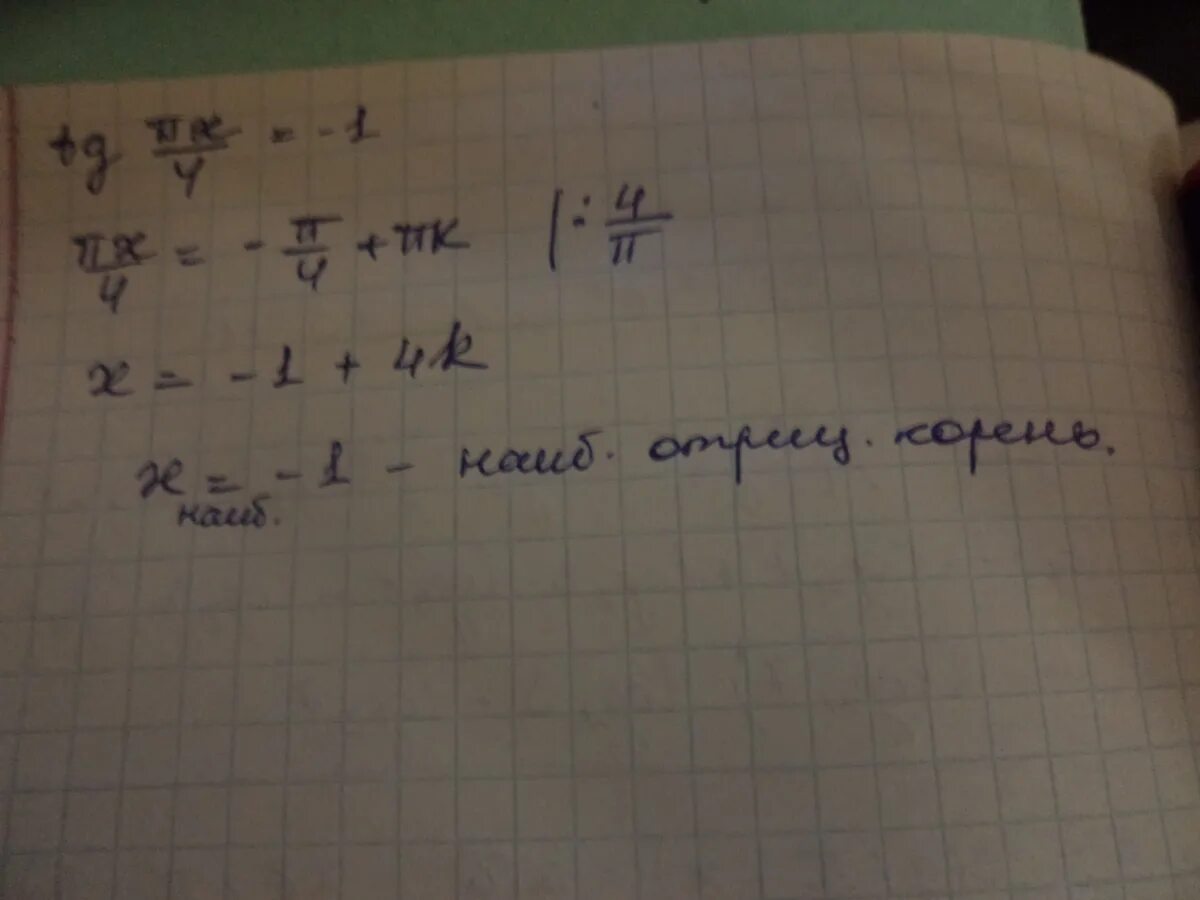 tg πx/4 = -1
πx/4 = - π/4 + πk |: 4/π
x = -1 + 4k
x наиб. = -1 - наиб. отриц. корень.